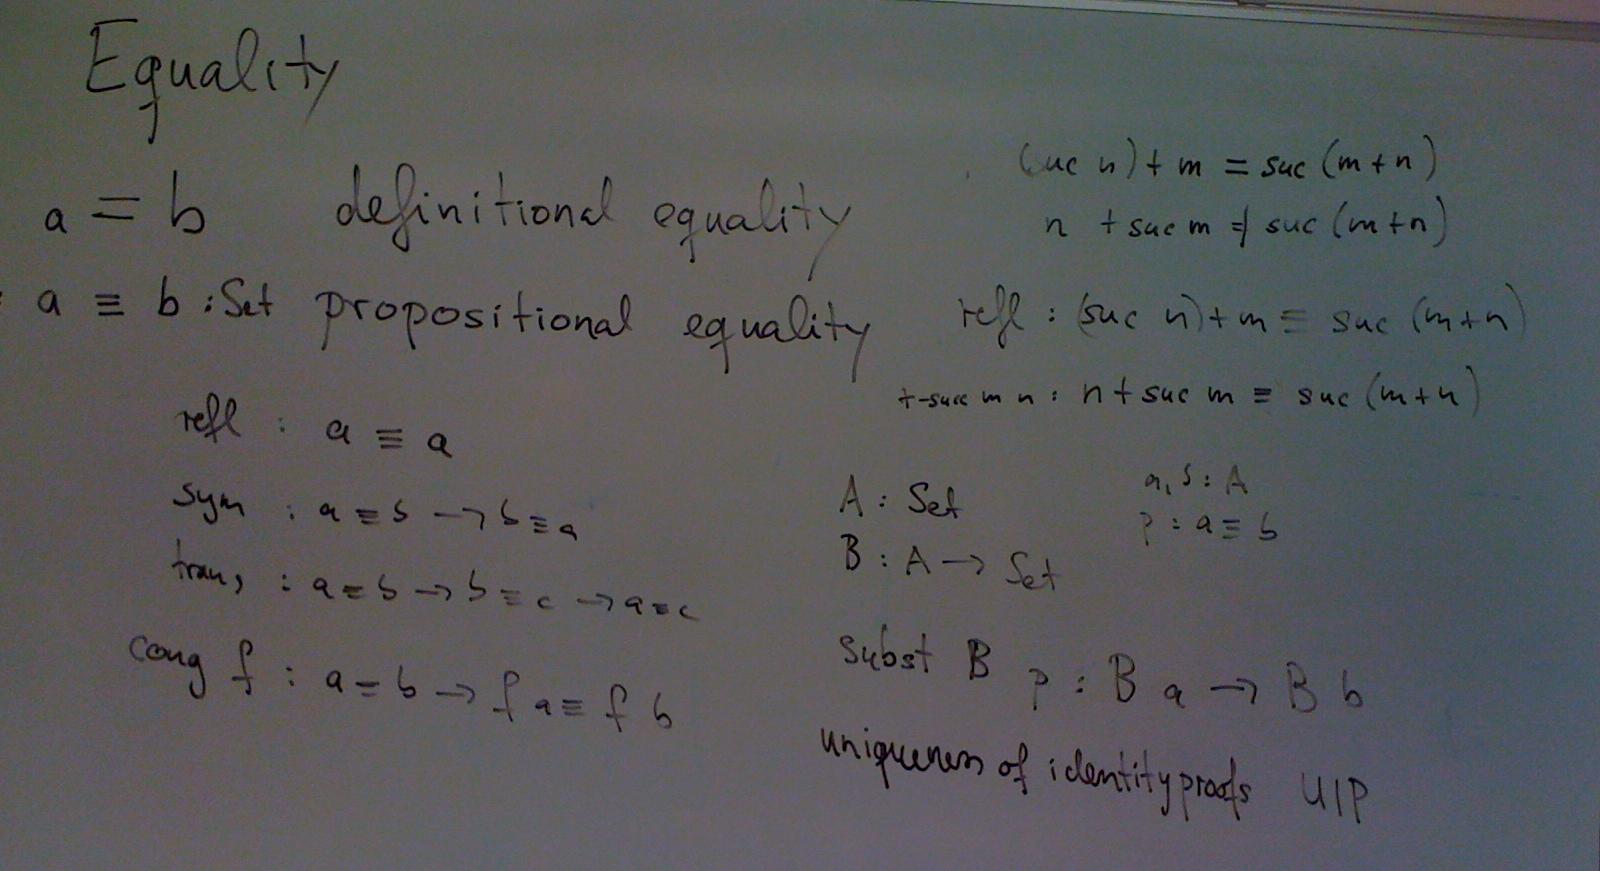 Equality
a = b definitional equality
a ≡ b : Set propositional equality
refl : a ≡ a
sym : a ≡ b → b ≡ a
trans : a ≡ b → b ≡ c → a ≡ c
cong f : a ≡ b → f a ≡ f b
(suc n) + m = suc (m + n)
n + suc m ≠ suc (m + n)
refl : (suc n) + m ≡ suc (m + n)
+-succ m n : n + suc m ≡ suc (m + n)
A : Set
B : A → Set
a, b : A
p : a ≡ b
Subst B p : B a → B b
uniqueness of identity proofs UIP